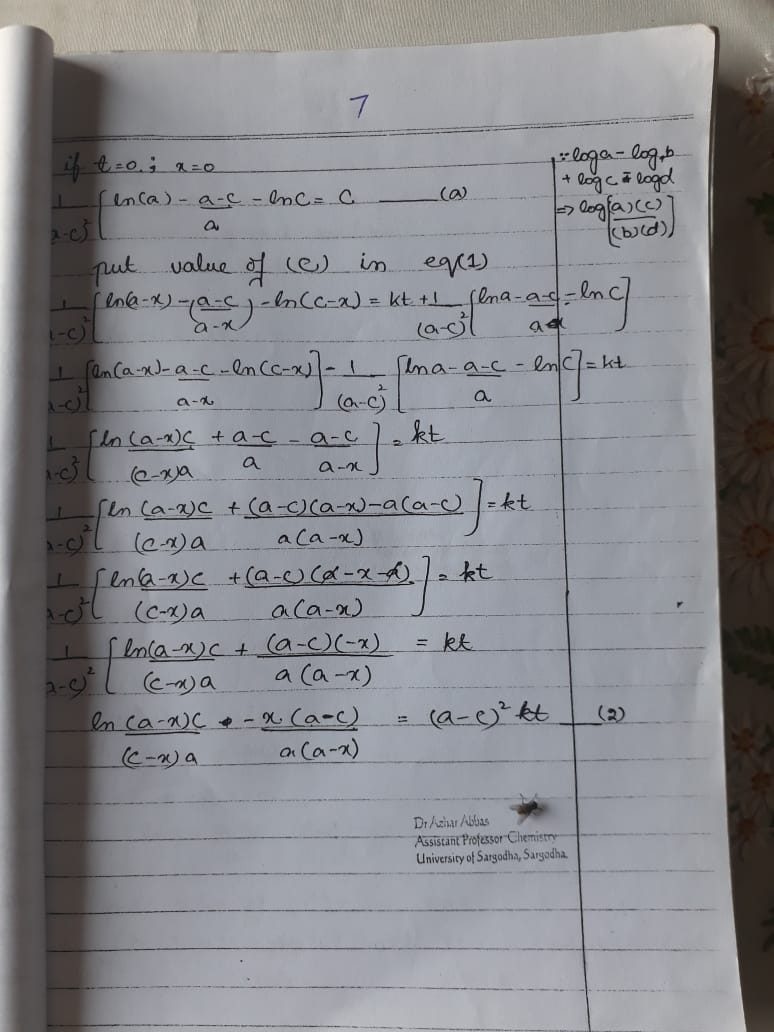 7
if t=0 ; x=0
∵ log a − log b
+ log c − log d
⇒ log [(a)(c)/(b)(d)]
1/(a-c)² [ln(a) − (a-c)/a − ln C = C ——— (a)
put value of (C) in eq(1)
1/(a-c)² [ln(a-x) − (a-c)/(a-x) − ln(c-x) = kt + 1/(a-c)² [ln a − (a-c)/a − ln C]
1/(a-c)² [ln(a-x) − (a-c)/(a-x) − ln(c-x)] − 1/(a-c)² [ln a − (a-c)/a − ln C] = kt
1/(a-c)² [ln (a-x)c/(c-x)a + (a-c)/a − (a-c)/(a-x)] = kt
1/(a-c)² [ln (a-x)c/(c-x)a + ((a-c)(a-x) − a(a-c))/a(a-x)] = kt
1/(a-c)² [ln (a-x)c/(c-x)a + (a-c)(a-x-a)/a(a-x)] = kt
1/(a-c)² [ln (a-x)c/(c-x)a + (a-c)(-x)/a(a-x) = kt
ln (a-x)c/(c-x)a − x(a-c)/a(a-x) = (a-c)² kt ——(2)
Dr Azhar Abbas
Assistant Professor Chemistry
University of Sargodha, Sargodha.